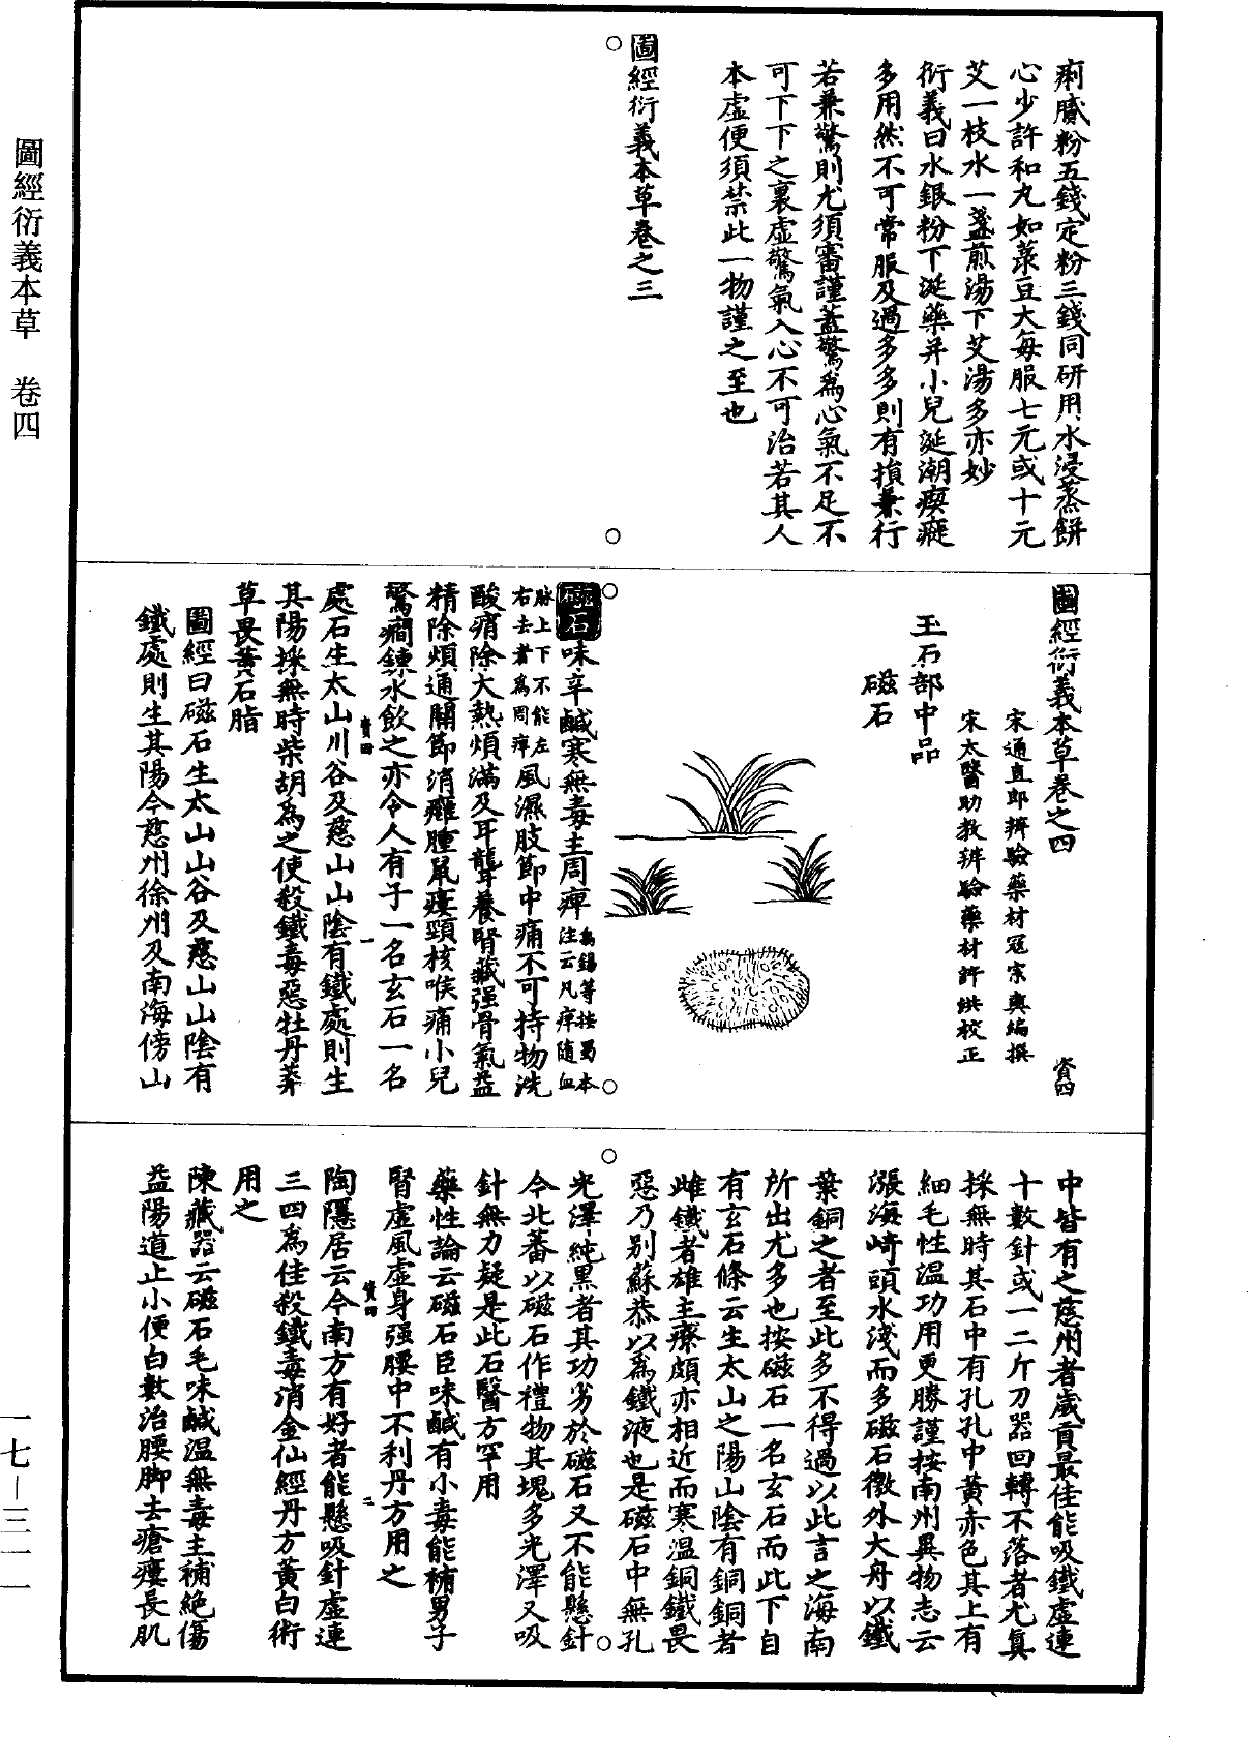 圖經衍義本草　卷四
痢膩粉五錢定粉三錢同研用水浸蒸餅
心少許和丸如菉豆大每服七元或十元
艾一枝水一盞煎湯下艾湯多亦妙
衍義曰水銀粉下涎藥并小兒涎潮瘈瘲
多用然不可常服及過多多則有損兼行
若兼驚則尤須審謹蓋驚爲心氣不足不
可下下之裏虛驚氣入心不可治若其人
本虛便須禁此一物謹之至也
圖經衍義本草卷之三
圖經衍義本草卷之四　資四
宋通直郎辨驗藥材寇宗奭編撰
宋太醫助教辨驗藥材許洪校正
玉石部中品
磁石
磁石味辛鹹寒無毒主周痹爲錫等按蜀本注云凡痹隨血
脉上下不能左右去者爲周痹風濕肢節中痛不可持物洗
酸痟除大熱煩滿及耳聾養腎藏强骨氣益
精除煩通關節消癰腫鼠瘻頸核喉痛小兒
驚癎鍊水飲之亦令人有子一名玄石一名
資四　一
處石生太山川谷及慈山山陰有鐵處則生
其陽採無時柴胡爲之使殺鐵毒惡牡丹莽
草畏黃石脂
圖經曰磁石生太山山谷及慈山山陰有
鐵處則生其陽今慈州徐州及南海傍山
中皆有之慈州者歲貢最佳能吸鐵虛連
十數針或一二斤刀器回轉不落者尤真
採無時其石中有孔孔中黃赤色其上有
細毛性溫功用更勝謹按南州異物志云
漲海崎頭水淺而多磁石徼外大舟以鐵
葉銅之者至此多不得過以此言之海南
所出尤多也按磁石一名玄石而此下自
有玄石條云生太山之陽山陰有銅銅者
雌鐵者雄主療頗亦相近而寒溫銅鐵畏
惡乃别蘇恭以爲鐵液也是磁石中無孔
光澤純黑者其功劣於磁石又不能懸針
今北蕃以磁石作禮物其塊多光澤又吸
針無力疑是此石醫方罕用
藥性論云磁石臣味鹹有小毒能補男子
腎虛風虛身强腰中不利丹方用之
資四　二
陶隱居云今南方有好者能懸吸針虛連
三四爲佳殺鐵毒消金仙經丹方黃白術
用之
陳藏器云磁石毛味鹹溫無毒主補絶傷
益陽道止小便白數治腰脚去瘡瘻長肌
一七—三一一